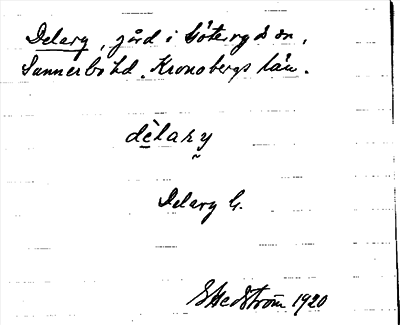 Delary, gård i Göteryds sn,
Sunnerbo hd. Kronobergs län.
dèlary
Delary G.
G Hedström 1920